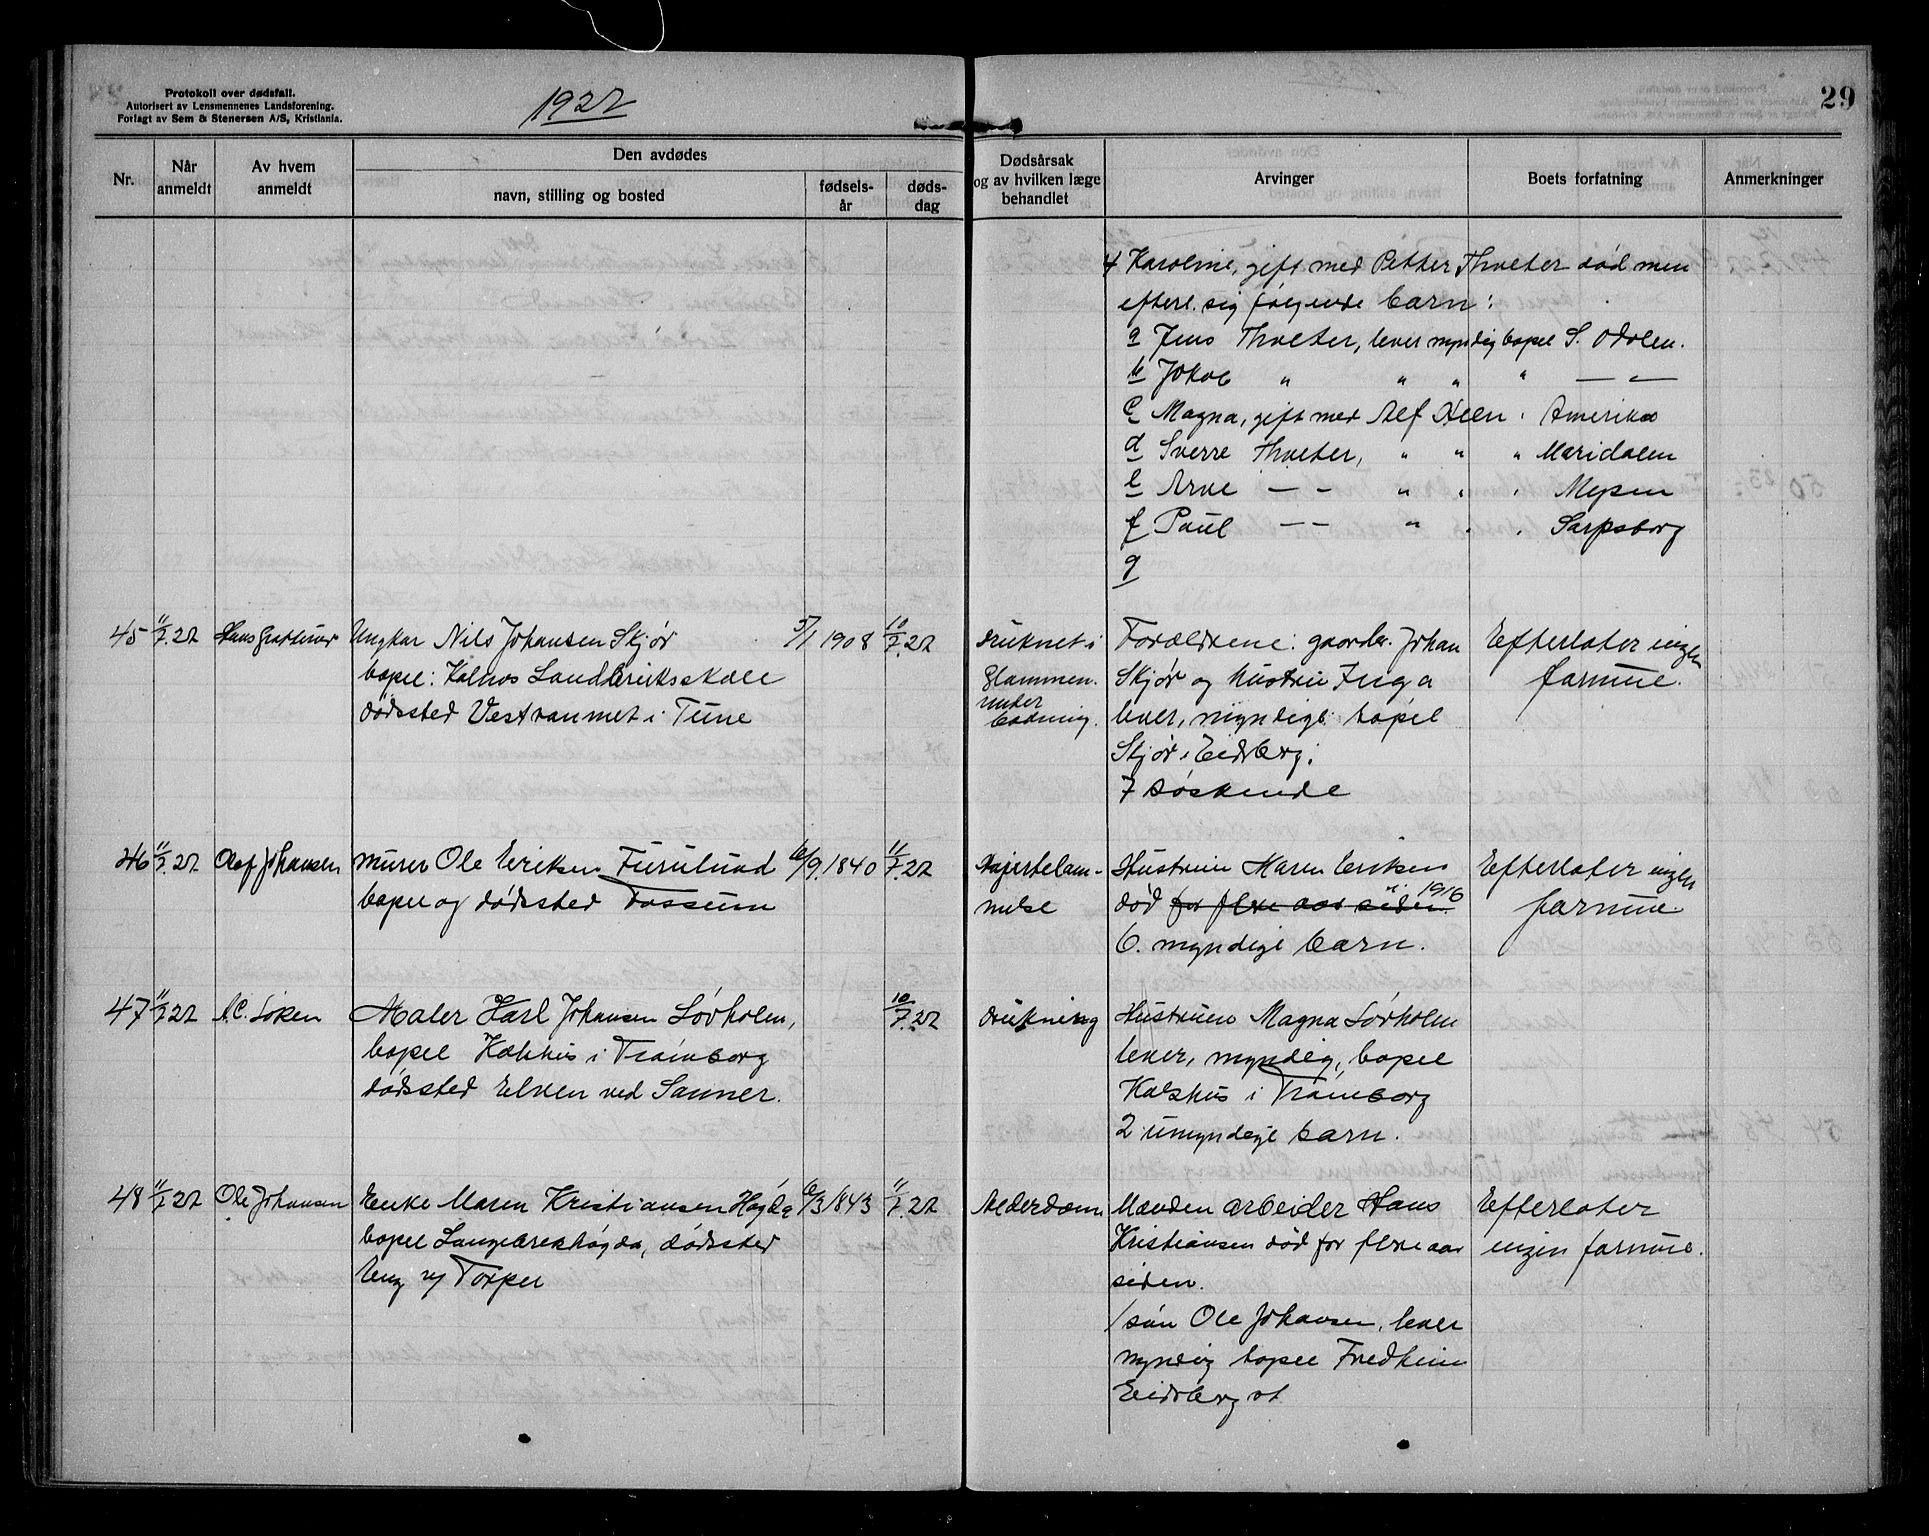 Protokoll over dødsfall.
Autorisert av Lensmennenes Landsforening.
Forlagt av Sem & Stenersen A/S, Kristiania.
1922
29
Nr.
Når anmeldt
Av hvem anmeldt
Den avdødes
navn, stilling og bosted
fødselsår
dødsdag
Dødsårsak og av hvilken læge behandlet
Arvinger
Boets forfatning
Anmerkninger
4 Karoline, gift med Petter Thveter død men
efterl. sig følgende barn:
a Jens Thveter, lever myndig bopel S. Odalen.
b Jakob " " " " — " —
c Magna, gift med Alf Heen " Amerika
d Sverre Thveter, " " " Maridalen
e Arve — — " " " Mysen
f Paul — — " " " Sarpsborg
g
45 11/7.22
Ungkar Nils Johansen Skjør
bopel: Kalnes Landbruksskole
dødssted Vestvannet i Tune
5/1 1908
10/7.22
Druknet i
Glommen.
under
badning.
Forældrene: gaardbr. Johan
Skjør og hustru Inga
lever, myndige bopel
Skjør i Eidsberg.
7 søskende
Efterlater ingen
formue.
46 11/7.22 Olaf Johansen
Murer Ole Eriksen Furulund
bopel og dødssted Fossum
/9.1840
11/7.22
Hjertelam-
melse
Hustruen Maren Eriksen
død for flere aar siden. i 1916
6. myndige barn.
Efterlater ingen
formue.
47 11/7 22 A.C. Løken
Maler Karl Johansen Løvholm,
bopel Kalshus i Trømborg
dødssted Elven ved Sanner.
10/7.22
Drukning
Hustruen Magna Løvholm
lever, myndig, bopel
Kalshus i Trømborg
2 umyndige barn.
48 11/7.22 Ole Johansen
Enke Maren Kristiansen Høgda
bopel Langbrekhøgda, dødssted
Eng u/ Torper
/3 1843
11/7.22
Alderdom
Manden arbeider Hans
Kristiansen død for flere aar
siden.
1 søn Ole Johansen, lever
myndig bopel Fredheim
Eidsberg st
Efterlater
ingen formue.